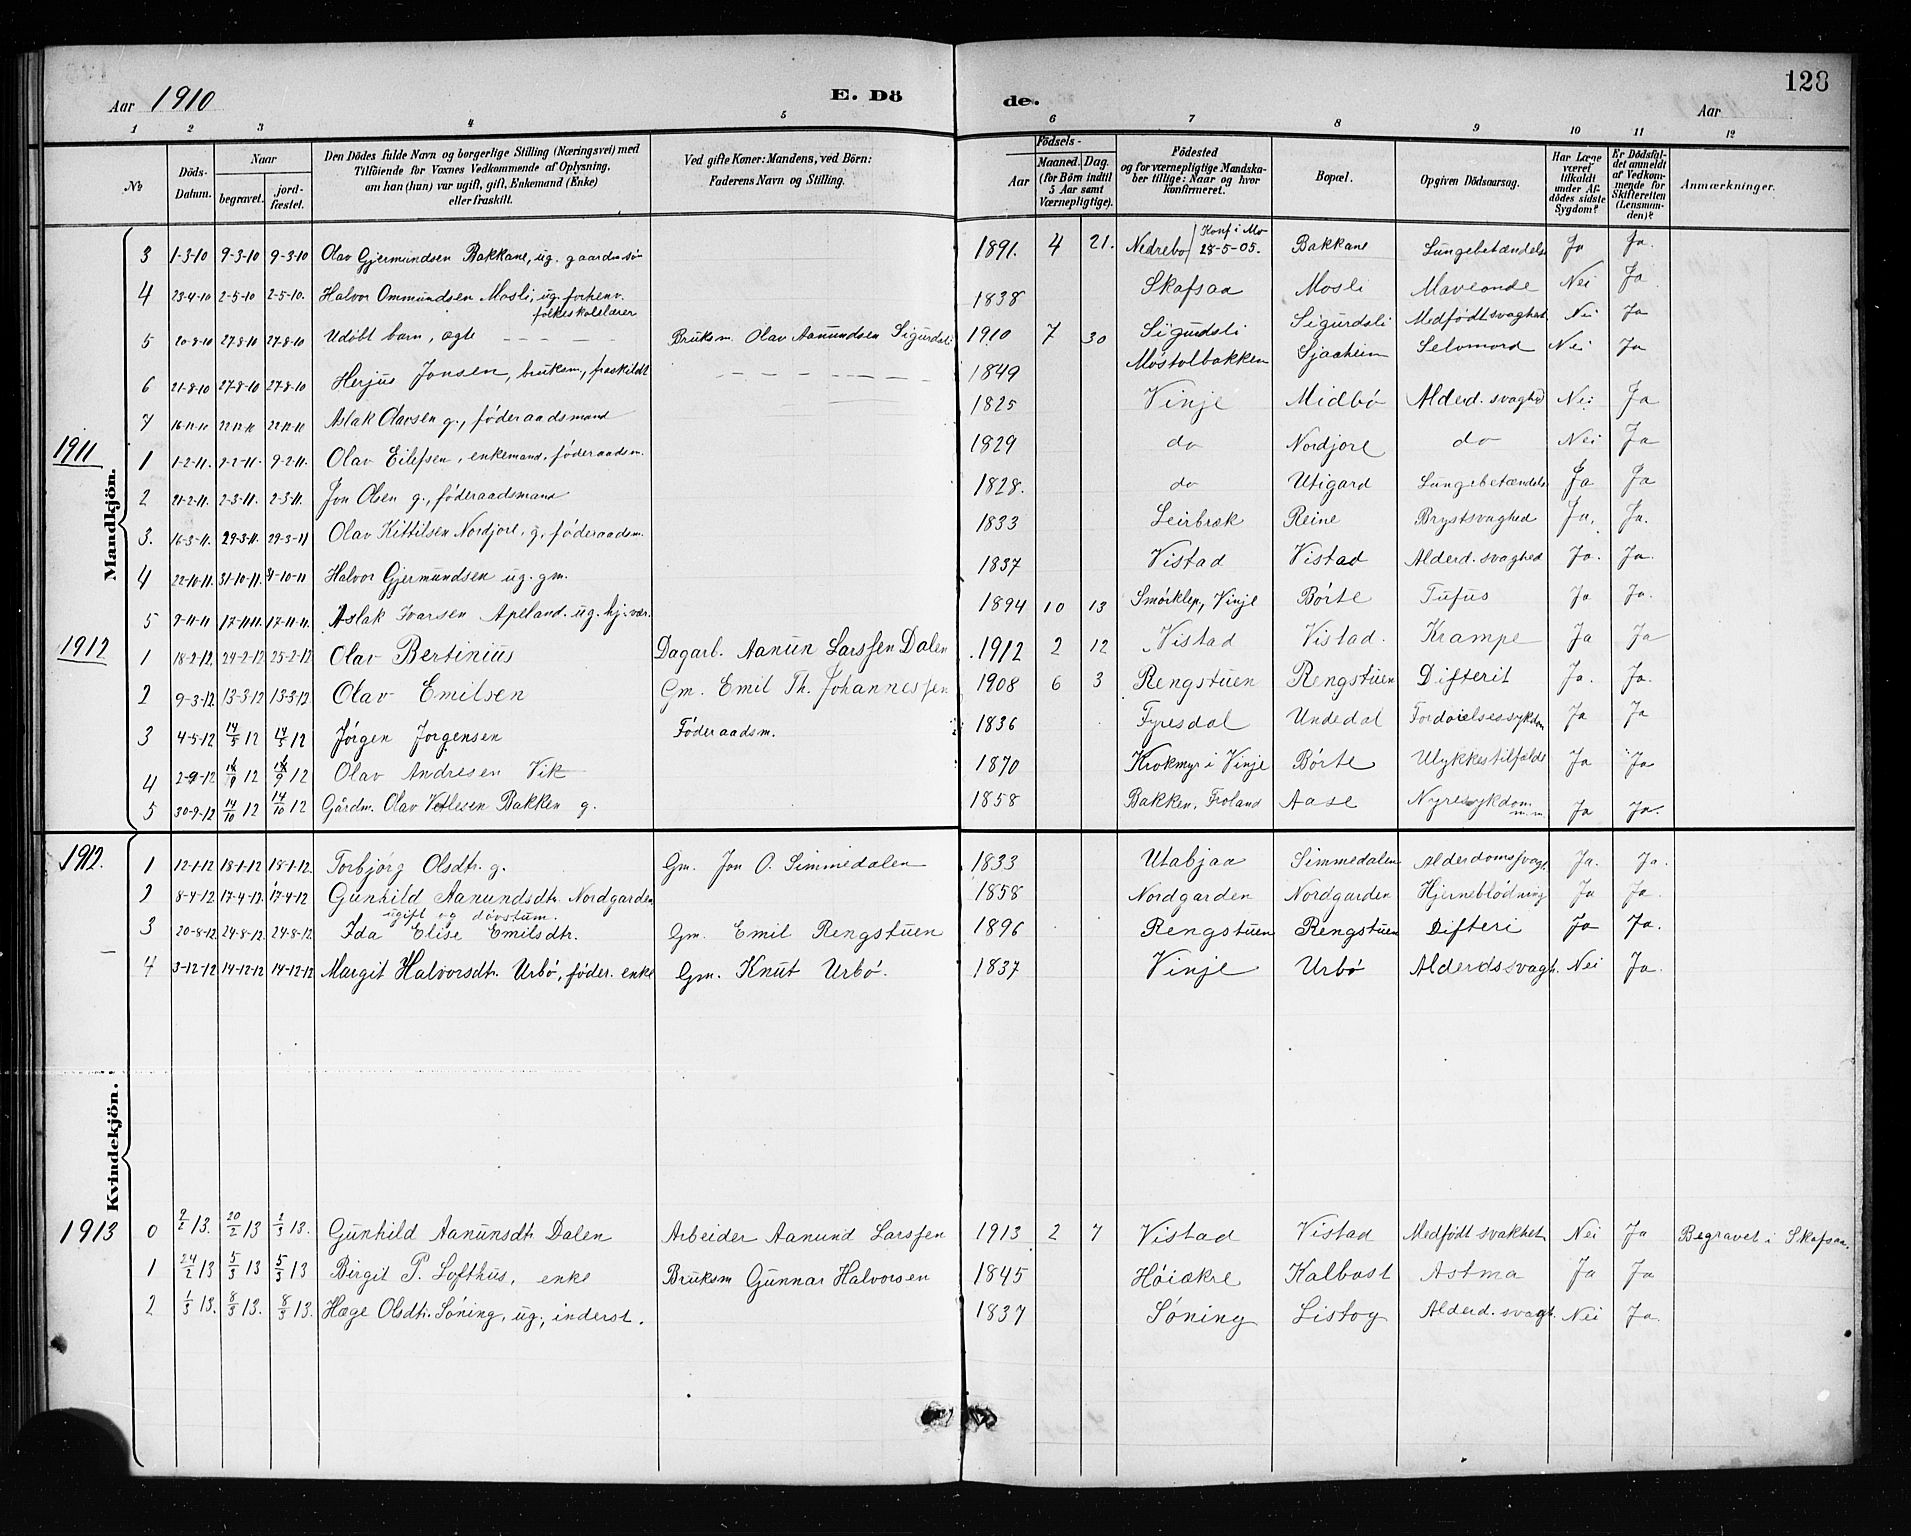 Aar 1910 E. Dö de. Aar 128
1 2 3 4 5 6 7 8 9 10 11 12
№ Döds-Datum. Naar begravet. jordfæstet. Den Dödes fulde Navn og borgerlige Stilling (Næringsvei) med Tilföiende for Voxnes Vedkommende af Oplysning, om han (hun) var ugift, gift, Enkemand (Enke) eller fraskilt. Ved gifte Koner: Mandens, ved Börn: Faderens Navn og Stilling. Födsels- Aar Maaned. Dag. (for Börn indtil 5 Aar samt Værnepligtige). Födested og for værnepligtige Mandskaber tillige: Naar og hvor konfirmeret. Bopæl. Opgiven Dödsaarsag. Har Læge været tilkaldt under Afdödes sidste Sygdom? Er Dödsfaldet anmeldt af Vedkommende for Skifteretten (Lensmanden)? Anmærkninger.
Mandkjön.
3 1-3-10 9-3-10 9-3-10 Olav Gjermundsen Bakkane, ug. gaardmsön 1891. 4 21. Nedrebø Konf i Mo 28-5-05. Bakkane Lungebetændelse Ja Ja.
4 23-4-10 2-5-10 2-5-10. Halvor Ommundsen Mosli, ug. forhenv. folkeskolelærer 1838 Skafsaa Mosli Maveonde Nei Ja
5 20-8-10 27-8-10 27-8-10 Udöbt barn, ægte Bruksm. Olav Aanundsen Sigurdsli 1910 7 30 Sigurdsli Sigurdsli Medfödt svaghet Nei Ja
6 21-8-10 27-8-10 27-8-10 Herjus Jonsen, bruksm, fraskildt 1849 Møstølbakken Sjaaheim Selvmord Nei Ja
7 16-11-10 22-11-10 22-11-10 Aslak Olavsen g., föderaadsmand 1825 Vinje Midbö Alderd. svaghed Nei Ja
1911
1 1-2-11. 9-2-11. 9-2-11. Olav Eilefsen, enkemand, föderaadsm. 1829 do Nordjore do Nei Ja
2 21-2-11. 2-3-11. 2-3-11. Jon Olsen g., föderaadsmand 1828. do Utigard Lungebetændels. Ja Ja
3. 16-3-11. 29-3-11. 29-3-11 Olav Kittilsen Nordjore, g. föderaadsm. 1833 Leirbræk Reine Brystsvaghed Ja. Ja.
4 22-10-11. 31-10-11. 31-10-11 Halvor Gjermundsen ug. gm. 1837 Vistad Vistad Alderd. svaghed Ja. Ja.
5 9-11-11 17-11-11. 17-11-11. Aslak Ivarsen Apeland. ug. hj. vær. 1894 10 13 Smörklep, Vinje Börte Tufus Ja Ja.
1912
1 18-2-12. 24-2-12 25-2-12 Olav Bertinius Dagarb. Aanun Larssen Dalen 1912 2 12 Vistad Vistad. Krampe Ja Ja
2 9-3-12 13-3-12 13-3-12 Olav Emilsen Gm. Emil Th. Johannessen 1908 6 3 Rengstuen Rengstuen Difterit Ja. Ja.
3 4-5-12 14/5 12 14/5 12 Jørgen Jørgensen Föderaadsm. 1836 Fyresdal Undedal Fordøielsessykdom Ja Ja
4 2-9-12 Olav Andresen Vik 1870 Krokmyr i Vinje Börte Ulykkestilfælde Ja Ja
5 30-9-12 14/10 12 14/10 12 Gårdm. Olav Vetlesen Bakken g. 1858 Bakken, Froland Aase Nyresykdom m.m Ja Ja.
1912.
Kvindekjön.
1 12-1-12 18-1-12 18-1-12. Torbjörg Olsdtr. g. Gm. Jon O. Simmedalen 1833 Utabjaa Simmedalen Alderdomssvagh. Ja. Ja.
2 8-4-12 17-4-12. 17-4-12 Gunhild Aanundsdtr. Nordgarden ugift og døvstum. 1858 Nordgarden Nordgarden Hjerneblödning Ja Ja.
3 20-8-12. 24-8-12. 24-8-12. Ida Elise Emilsdtr. Gm. Emil Rengstuen 1896 Rengstuen Rengstuen Difteri Ja Ja.
4 3-12-12 14-12-12 14-12-12 Margit Halvorsdtr. Urbö, föder. enke Gm. Knut Urbö. 1837 Vinje Urbö Alderdssvagh. Nei Ja.
1913
0 9/2 13. 20/2 13 2/3 13. Gunhild Aanunsdtr Dalen Arbeider Aanund Larssen 1913 2 7 Vistad Vistad Medfödt svakhet Nei Ja Begravet i Skafsaa.
1 24/2 13 5/3 13 5/3 13 Birgit P. Lofthus, enke Bruksm Gunnar Halvorsen 1845 Høiækre Kalbast Astma Ja Ja
2 1/3 13. 8/3 13. 8/3 13. Hæge Olsdtr. Søning, ug., inderst. 1837 Søning Listog Alderd. svagh. Nei Ja.